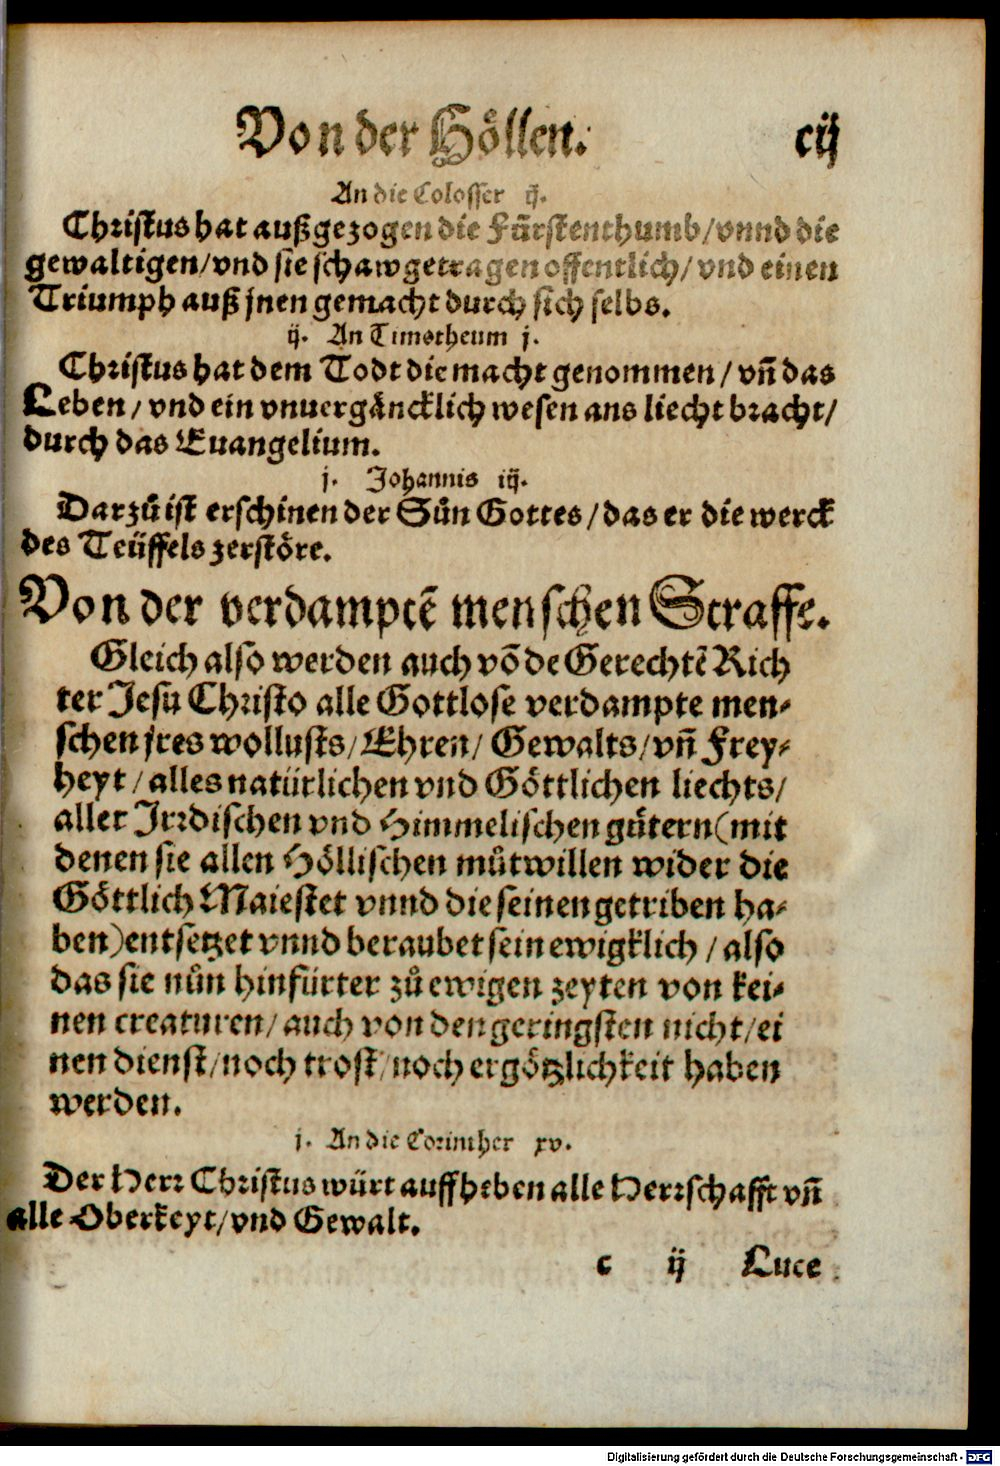 Von der Hoͤllen. cij
An die Colosser ij.
Christus hat außgezogen die Fürstenthumb/vnnd die
gewaltigen/vnd sie schaw getragen offentlich/vnd einen
Triumph auß jnen gemacht durch sich selbs.
ij. An Timotheum j.
Christus hat dem Todt die macht genommen/vn̄ das
Leben/vnd ein vnuergaͤncklich wesen ans liecht bracht/
durch das Euangelium.
j. Johannis iij.
Darzuͦ ist erschinen der Suͦn Gottes/das er die werck
des Teüffels zerstoͤre.
Von der verdamptē menschen Straffe.
Gleich also werden auch võ de Gerechtē Rich
ter Jesu Christo alle Gottlose verdampte men-
schen jres wollusts/Ehren/Gewalts/vn̄ Frey-
heyt/alles natürlichen vnd Goͤttlichen liechts/
aller Jrrdischen vnd Himmelischen guͤtern(mit
denen sie allen Hoͤllischen muͦtwillen wider die
Goͤttlich Maiestet vnnd die seinen getriben ha-
ben)entsetzet vnnd beraubet sein ewigklich/also
das sie nuͦn hinfürter zuͦ ewigen zeyten von kei-
nen creaturen/auch von den geringsten nicht/ei
nen dienst/noch trost/noch ergoͤtzlichkeit haben
werden.
j. An die Corinther xv.
Der Herr Christus würt auffheben alle Herrschafft vn̄
alle Oberkeyt/vnd Gewalt.
c ij Luce
Digitalisierung gefördert durch die Deutsche Forschungsgemeinschaft - DFG